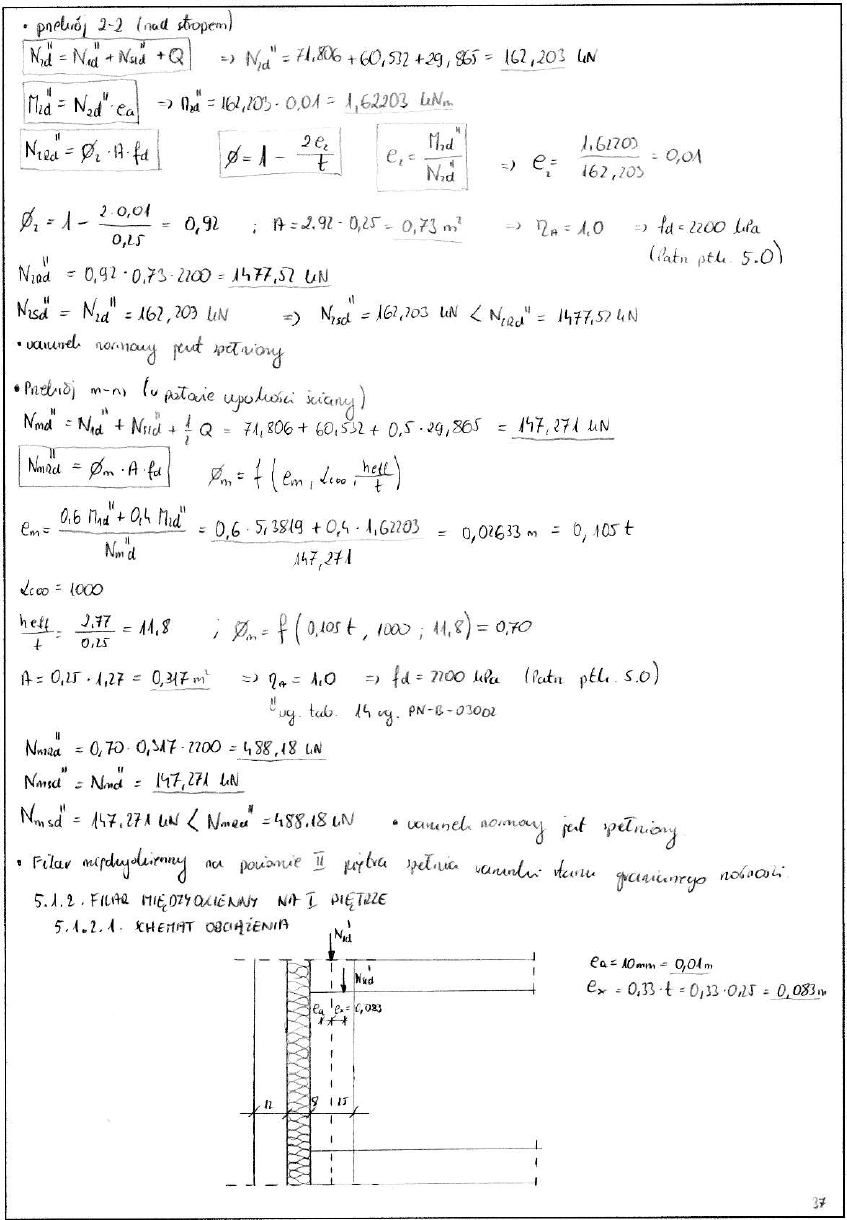 • przekrój 2-2 (nad stropem)
N2d'' = N1d'' + Ns1d'' + Q => N2d'' = 71,806 + 60,532 + 29,865 = 162,203 kN
M2d'' = N2d'' · ea => M2d'' = 162,203 · 0,01 = 1,62203 kNm
N2Rd'' = Ø2 · A · fd Ø = 1 - 2e2/t e2 = M2d''/N2d'' => e2 = 1,62203/162,203 = 0,01
Ø2 = 1 - 2·0,01/0,25 = 0,92 ; A = 2.92 · 0,25 = 0,73 m² => ηA = 1,0 => fd = 2200 kPa
(Patrz pkt. 5.0)
N2Rd'' = 0,92 · 0,73 · 2200 = 1477,52 kN
N2sd'' = N2d'' = 162,203 kN => N2sd'' = 162,203 kN < N2Rd'' = 1477,52 kN
• warunek normowy jest spełniony
• Przekrój m-m (w połowie wysokości ściany)
Nmd'' = N1d'' + Ns1d'' + 1/2 Q = 71,806 + 60,532 + 0,5 · 29,865 = 147,271 kN
NmRd'' = Øm · A · fd Øm = f (em, α∞, heff/t)
em = 0,6 M1d'' + 0,4 M2d''/Nmd'' = 0,6 · 5,3819 + 0,4 · 1,62203/147,271 = 0,02633 m = 0,105 t
α∞ = 1000
heff/t = 2,77/0,25 = 11,8 ; Øm = f (0,105 t, 1000; 11,8) = 0,70
A = 0,25 · 1,27 = 0,317 m² => ηA = 1,0 => fd = 2200 kPa (Patrz pkt. 5.0)
wg. tab. 14 wg. PN-B-03002
NmRd'' = 0,70 · 0,317 · 2200 = 488,18 kN
Nmsd'' = Nmd'' = 147,271 kN
Nmsd'' = 147,271 kN < NmRd'' = 488,18 kN • warunek normowy jest spełniony
• Filar międzyokienny na poziomie II piętra spełnia warunki stanu granicznego nośności.
5.1.2. FILAR MIĘDZYOKIENNY NA I PIĘTRZE
5.1.2.1. SCHEMAT OBCIĄŻENIA
N1d'
ea = 10mm = 0,01m
ex = 0,33 · t = 0,33 · 0,25 = 0,083m
ea ex = 0,083
12 8 25
37